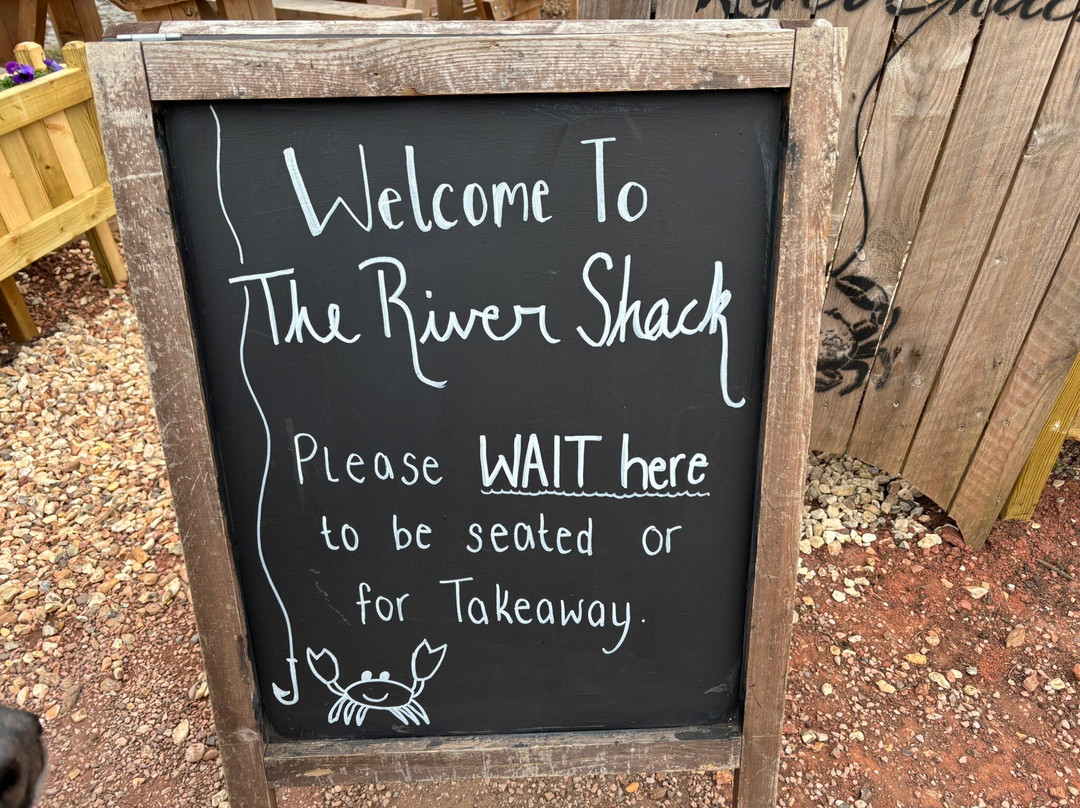 Welcome To
The River Shack
Please WAIT here
to be seated or
for Takeaway.